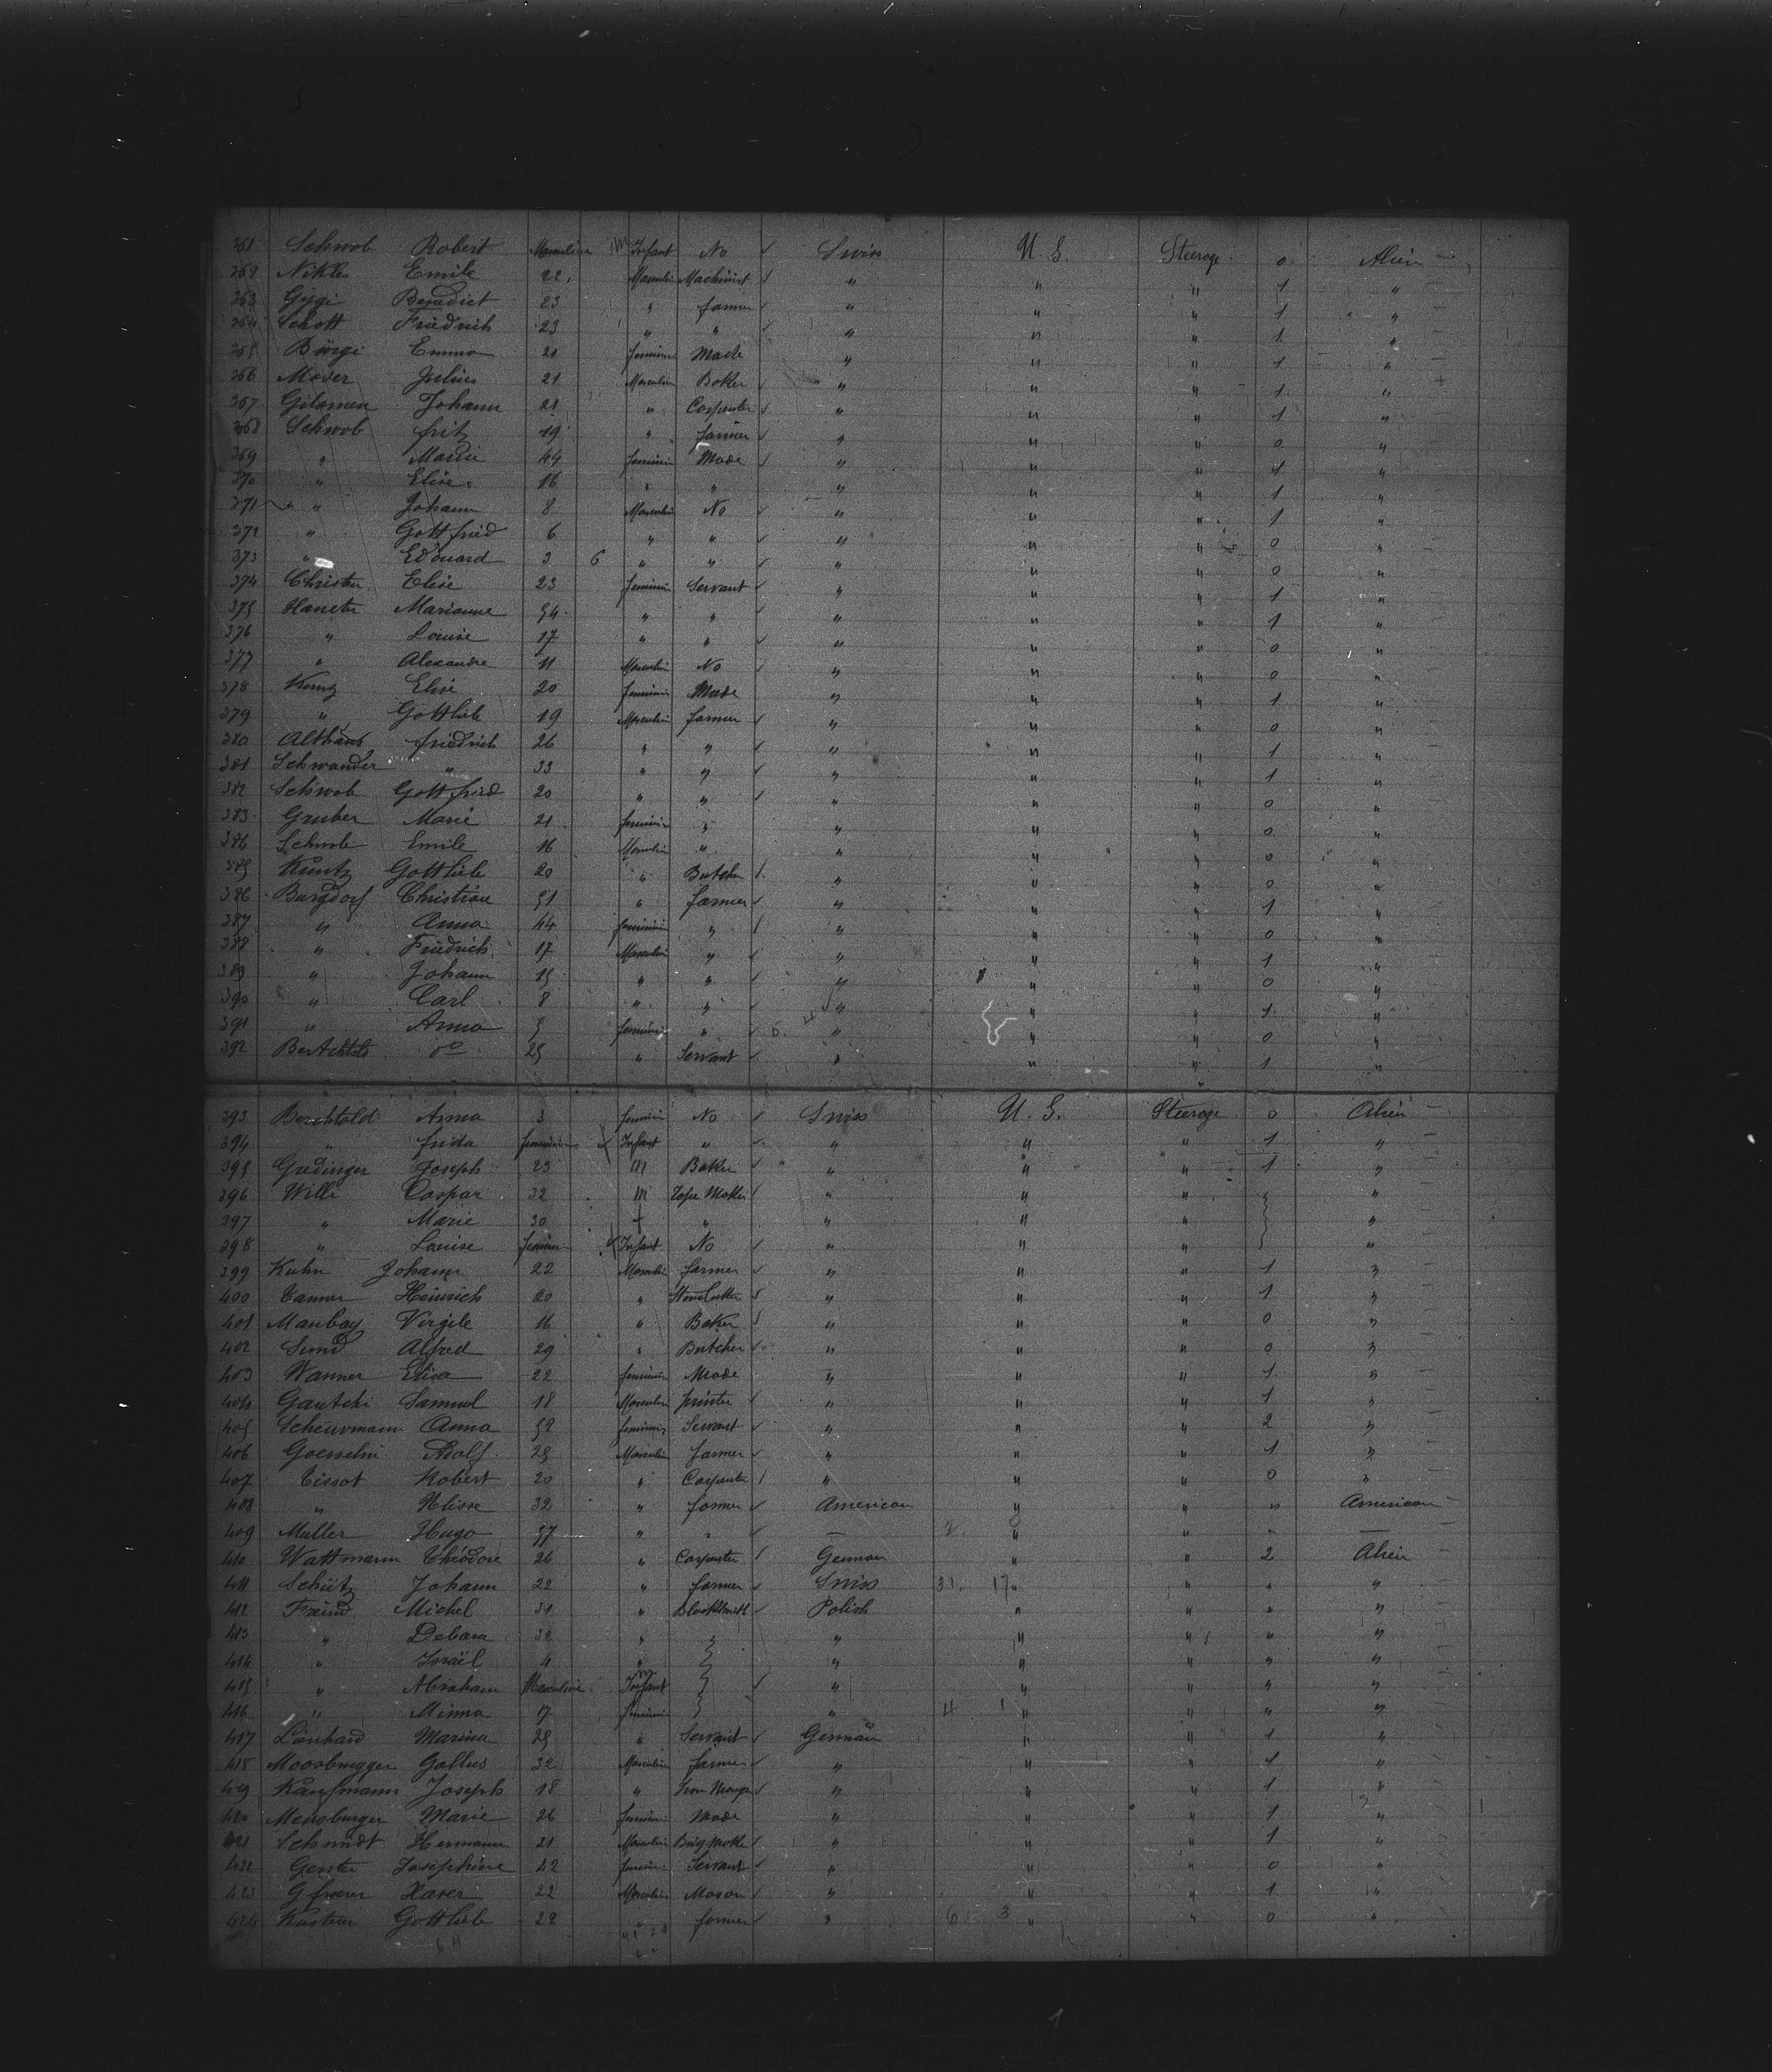 361 Schwob Robert Masculin Infant No Swiss U. S. Steerage 0 Alien
362 Nikles Emile 22 Masculin Machinist " " " 1 "
363 Gygi Benedict 23 " farmer " " " 1 "
364 Schott Friedrich 23 " " " " " 1 "
365 Bürgi Emma 21 feminin Made " " " 1 "
366 Moser Julius 21 Masculin Baker " " " 1 "
367 Gilomen Johann 21 " Carpenter " " " 1 "
368 Schwob fritz 19 " farmer " " " 0 "
369 " Marie 44 feminin Made " " " 1 "
370 " Elise 16 " " " " " 1 "
371 " Johann 8 Masculin No " " " 1 "
372 " Gottfried 6 " " " " " 0 "
373 " Edouard 3 6 " " " " " 0 "
374 Christen Elise 23 feminin Servant " " " 1 "
375 Marianne 54 " " " " " 1 "
376 " Louise 17 " " " " " 0 "
377 " Alexandre 11 Masculin No " " " 0 "
378 Kunz Elise 20 feminin Made " " " 1 "
379 " Gottlieb 19 Masculin farmer " " " 0 "
380 Althaus friedrich 26 " " " " " 1 "
381 Schwander " 33 " " " " " 1 "
382 Schwob Gottfried 20 " " " " " 0 "
383 Gruber Marie 21 feminin " " " " 0 "
384 Schwob Emile 16 Masculin " " " " 0 "
385 Kuntz Gottlieb 20 " Butcher " " " 0 "
386 Burgdorf Christian 51 " farmer " " " 1 "
387 " Anna 44 feminin " " " " 0 "
388 " Friedrich 17 Masculin " " " " 1 "
389 " Johann 15 " " " " " 0 "
390 " Carl 8 " " " " " 1 "
391 " Anna 5 feminin " " " " 0 "
392 do 25 " Servant " " " 1 "
393 Berchtold Anna 3 feminin No Swiss U. S. Steerage 0 Alien
394 " frida feminin Infant " " " " 1 "
395 Gredinger Joseph 23 M Baker " " " 1 "
396 Willi Caspar 32 M Tape Maker " " " "
397 " Marie 30 " " " " "
398 " Louise feminin Infant No " " " "
399 Kuhn Johann 22 Masculin farmer " " " 1 "
400 Heinrich 20 " Stonecutter " " " 1 "
401 Virgile 16 " Baker " " " 0 "
402 Alfred 29 " Butcher " " " 0 "
403 Wanner Elisa 22 feminin Made " " " 1 "
404 Gautschi Samuel 18 Masculin printer " " " 1 "
405 Scheurmann Anna 52 feminin Servant " " " 2 "
406 Adolf 25 Masculin farmer " " " 1 "
407 Tissot Robert 20 " Carpenter " " " 0 "
408 " Ulisse 32 " farmer American " " " American
409 Muller Hugo 57 " " — " " — —
410 Wattmann Théodore 24 " Carpenter German " " 2 Alien
411 Schütz Johann 22 " farmer Swiss 31. 17 " " " "
412 Michel 31 " Blacksmith Polish " " " "
413 " Debora 32 " " " " " "
414 " Israël 4 " " " " " "
415 " Abraham Masculin Infant " " " " "
416 " Minna 17 feminin " 4 1 " " " "
417 Marina 25 " Servant German " " 1 "
418 Moosbrugger Gallus 32 Masculin farmer " " " 1 "
419 Kaufmann Joseph 18 " " " " 1 "
420 Meusburger Marie 26 feminin Made " " " 1 "
421 Schmidt Hermann 21 Masculin " " " 1 "
422 Gerster Josephine 42 feminin Servant " " " 0 "
423 Xaver 22 Masculin Mason " " " 1 "
424 Gottlieb 22 " farmer " 6 3 " " 0 "
64